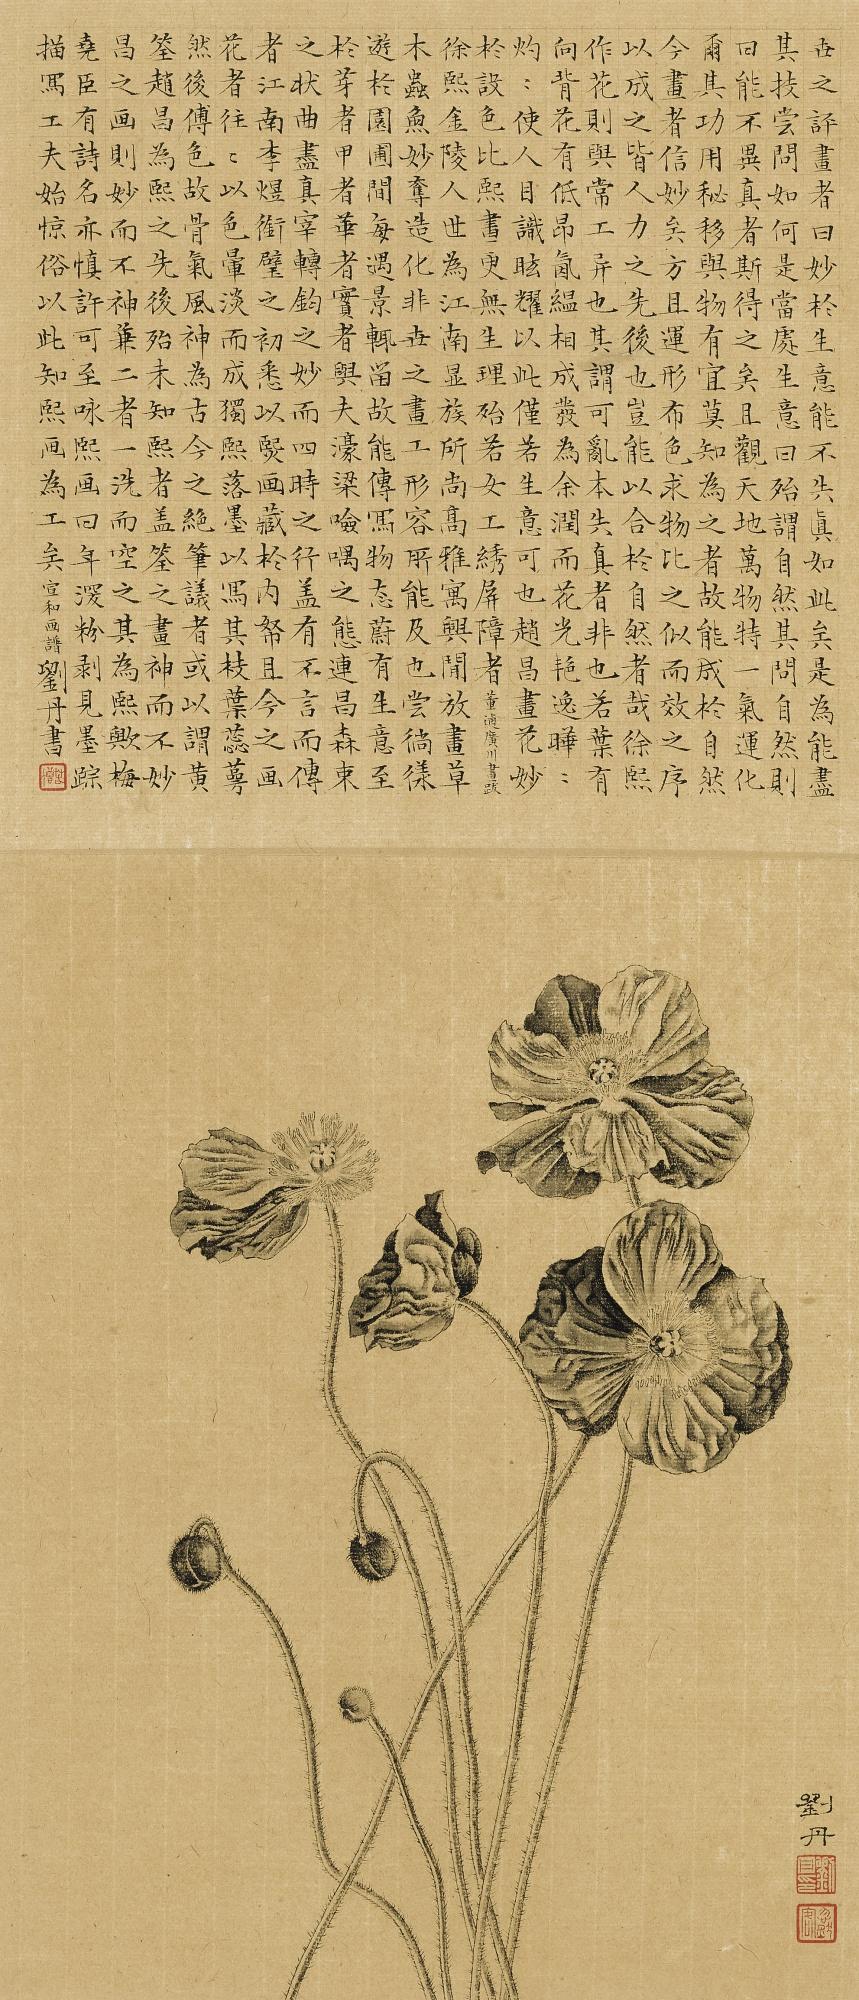 世之評畫者曰妙於生意能不失真如此矣是為能盡
其技嘗問如何是當處生意曰殆謂自然其問自然則
曰能不異真者斯得之矣且觀天地萬物特一氣運化
爾其功用秘移與物有宜莫知為之者故能成於自然
今畫者信妙矣方且運形布色求物比之似而效之序
以成之皆人力之先後也豈能以合於自然者哉徐熙
作花則與常工异也其謂可亂本失真者非也若葉有
向背花有低昂氤緼相成發為余潤而花光艳逸曄〻
灼〻使人目識眩耀以此僅若生意可也趙昌畫花妙
於設色比熙畫更無生理殆若女工綉屏障者董逌廣川書跋
徐熙金陵人世為江南显族所尚髙雅寓興閒放畫草
木蟲魚妙奪造化非世之畫工形容所能及也尝徜徉
遊於園圃間每遇景輒留故能傳寫物态蔚有生意至
於芽者甲者華者實者與夫濠梁噞喁之態連昌森束
之状曲盡真宰轉鈞之妙而四時之行盖有不言而傳
者江南李煜銜璧之初悉以熙画藏於内帑且今之画
花者往〻以色暈淡而成獨熙落墨以寫其枝葉蕊萼
然後傅色故骨氣風神為古今之絕筆議者或以謂黄
筌趙昌為熙之先後殆未知熙者盖筌之畫神而不妙
昌之画則妙而不神兼二者一洗而空之其為熙歟梅
堯臣有詩名亦慎許可至咏熙画曰年深粉剥見墨踪
描寫工夫始惊俗以此知熙画為工矣宣和画譜劉丹書
劉丹